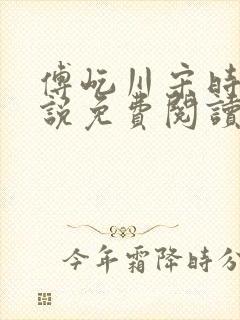 傅屹川宋時
說免費閱讀
今年霜降時分